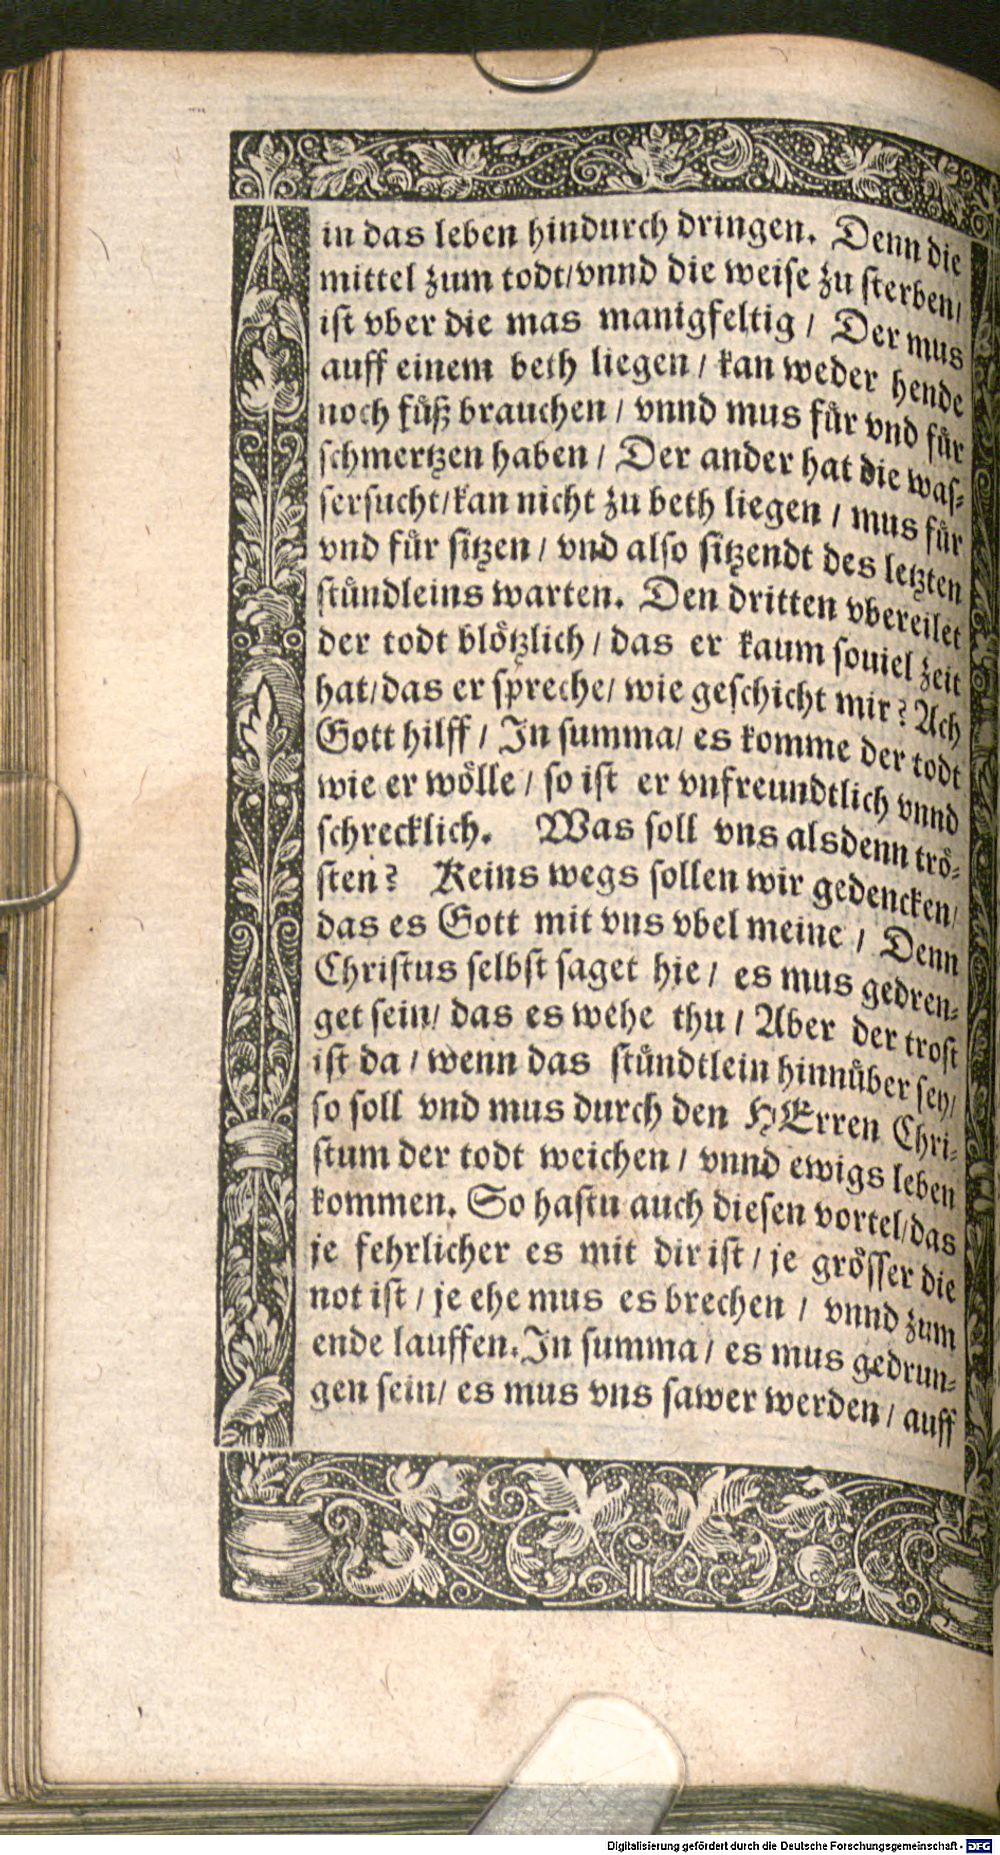 in das leben hindurch dringen. Denn die
mittel zum todt/vnnd die weise zu sterben/
ist vber die mas manigfeltig / Der mus
auff einem beth liegen / kan weder hende
noch füß brauchen / vnnd mus für vnd für
schmertzen haben / Der ander hat die was=
sersucht/kan nicht zu beth liegen / mus für
vnd für sitzen / vnd also sitzendt des letzten
stündleins warten. Den dritten vbereilet
der todt blötzlich / das er kaum souiel zeit
hat/das er spreche/ wie geschicht mir? Ach
Gott hilff / In summa/ es komme der todt
wie er wölle / so ist er vnfreundtlich vnnd
schrecklich. Was soll vns alsdenn trö=
sten? Keins wegs sollen wir gedencken/
das es Gott mit vns vbel meine / Denn
Christus selbst saget hie / es mus gedren=
get sein/ das es wehe thu / Aber der trost
ist da / wenn das stündtlein hinnüber sey/
so soll vnd mus durch den HErren Chri=
stum der todt weichen / vnnd ewigs leben
kommen. So hastu auch diesen vortel/das
je fehrlicher es mit dir ist / je grösser die
not ist / je ehe mus es brechen / vnnd zum
ende lauffen. In summa / es mus gedrun=
gen sein/ es mus vns sawer werden / auff
Digitalisierung gefördert durch die Deutsche Forschungsgemeinschaft - DFG